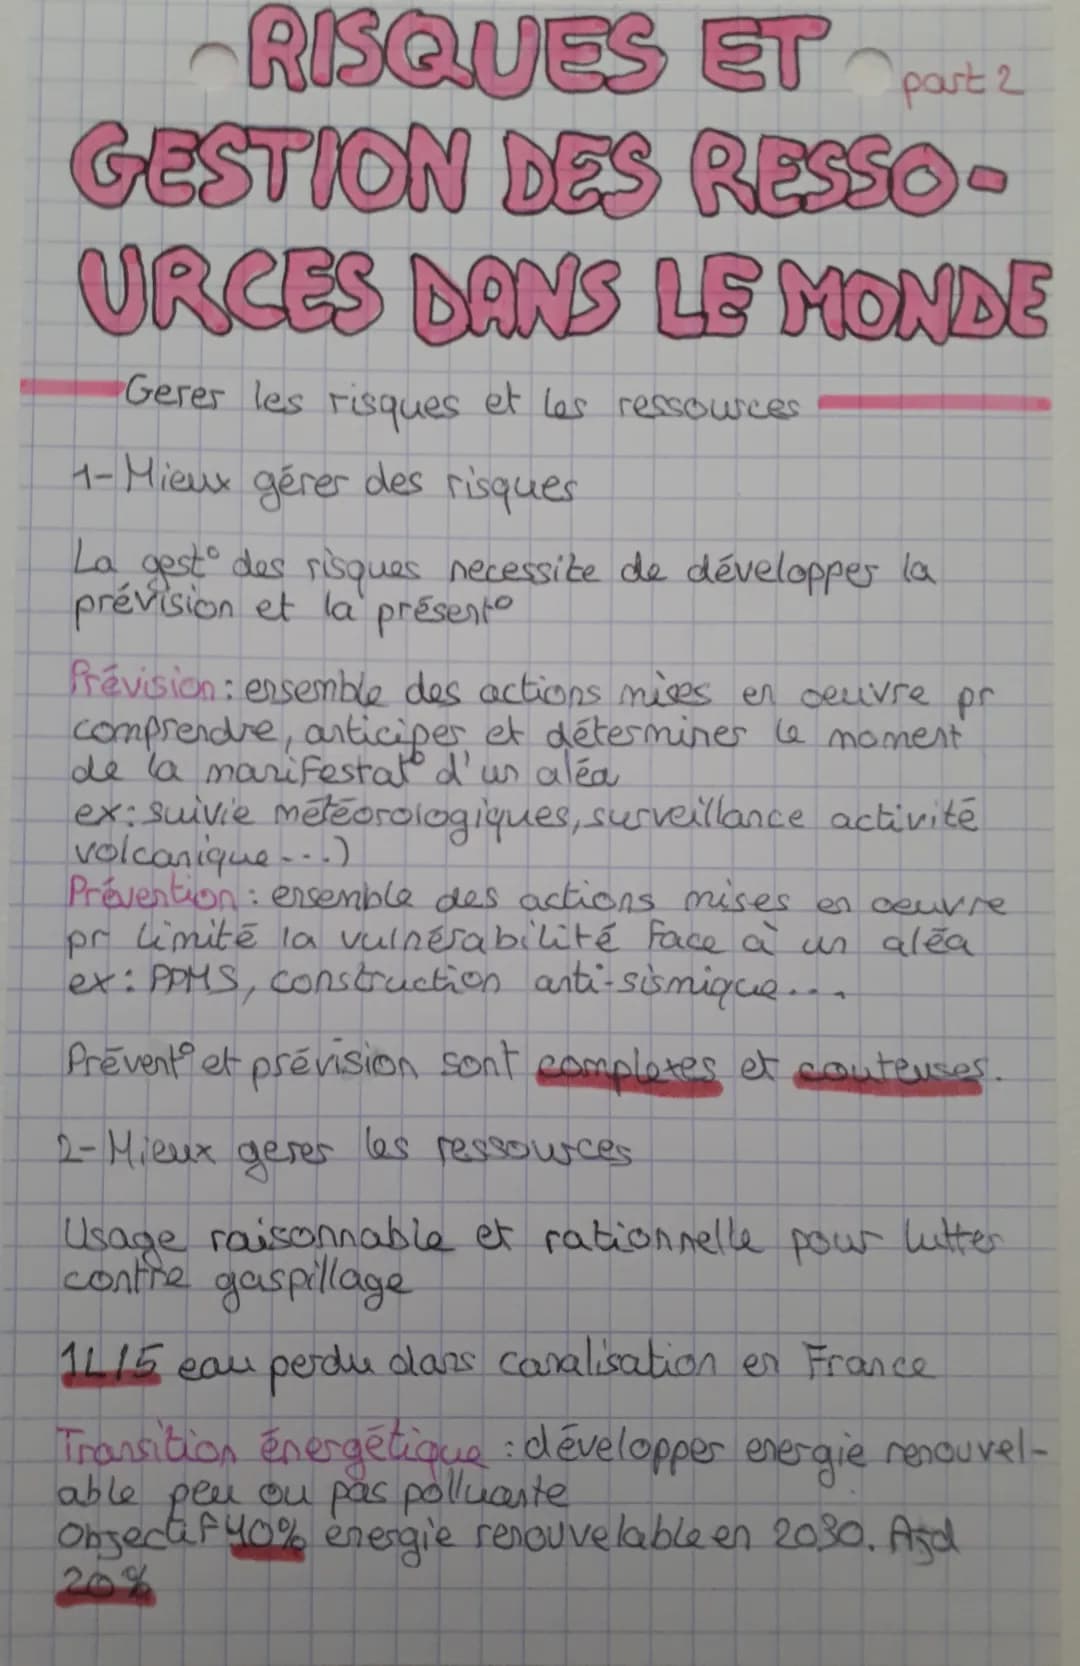 RISQUES ET
part 2
GESTION DES RESSO-
URCES DANS LE MONDE
Gerer les risques et les ressources
1-Mieux gérer des risques
La gest° des risques necessite de développer la
prévision et la présent°
Prévision : ensemble des actions mises en oeuvre pr
comprendre, anticiper et déterminer le moment
de la manifestat° d'un aléa
ex: suivie météorologiques, surveillance activité
volcanique...)
Prévention : ensemble des actions mises en oeuvre
pr limité la vulnérabilité face à un aléa
ex: PPMS, construction anti-sismique...
Prévent° et prévision sont complexes et couteuses.
2-Mieux gerer les ressources
Usage raisonnable et rationnelle pour lutter
contre gaspillage
1L/5 eau perdu dans canalisation en France
Transition énergétique : développer energie renouvel-
able peu ou pas polluante
Objectif 40% énergie renouvelable en 2030. Ajd
20%